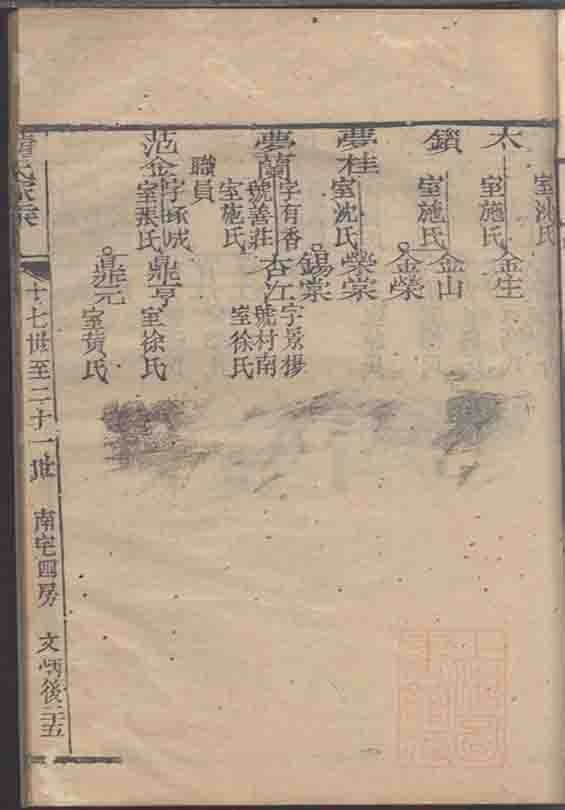 室沈氏
太
室施氏
金生
鎖
室施氏
金山
金榮
夢桂
室沈氏
榮棠
錫棠
夢蘭
字有香
號善莊
室施氏
杏江
字景楊
號村南
室徐氏
職員
范金
字琢成
室張氏
鼎亨
室徐氏
鼎元
室黃氏
十七世至二十一世
南宅四房
文炳後二十五